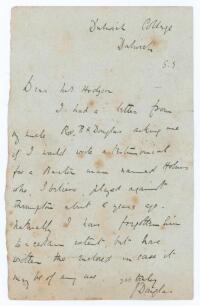 Dulwich College
Dulwich
S.E.
Dear Mr Hodgson
I had a letter from
my uncle Rev. R N Douglas asking me
if I would write a testimonial
for a man named Holmes
who I believe, played against
about 6 years ago.
Naturally I have forgotten him
to a certain extent, but have
written the enclosed in case it
may be of any use
yrs truly
J Douglas